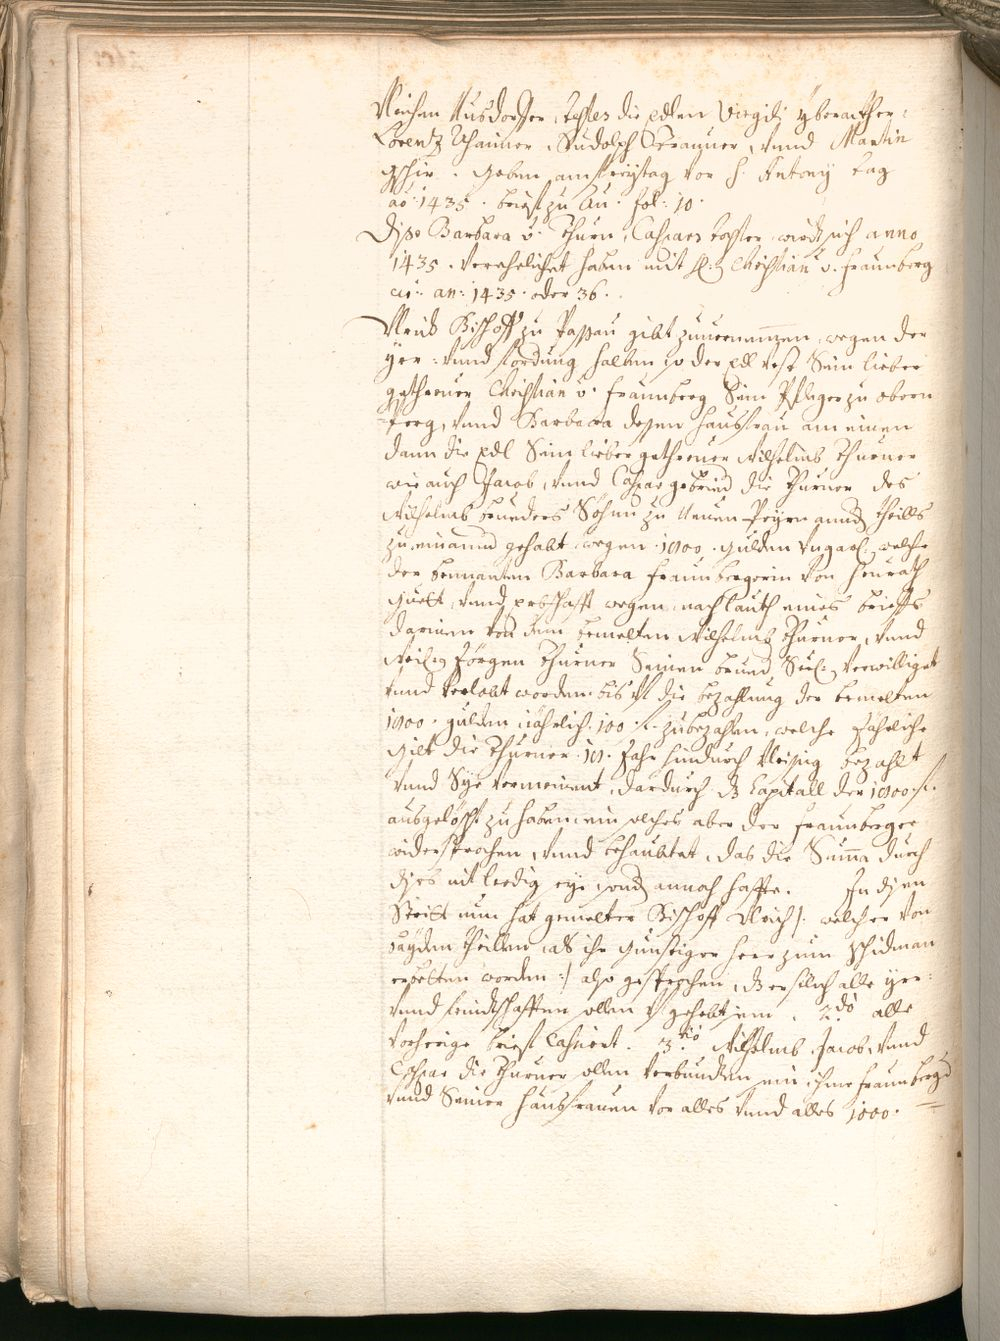 Reichen Nusdorffer, testes die edlen Virgili yberackher,
Lorentz Uhainer, Rudolph Trauner, vnnd Martin
gschir. geben am freytag vor S. Antony tag
aõ: 1435. brieff zu Au. fol: 10.
Dise Barbara v. Thurn, Caspars tochter, wirdt sich anno
1435. verehelichet haben mit H: Christian v. fraunberg
an: 1435. oder 36.
Ulrich Bischoff zu Passau gibt zuuernemmen, wegen der
yrr: vnnd vordrung halben so der edl vest Sein lieber
gethreuer Christian v. fraunberg Sein Pfleger zu obern
perg, vnnd Barbara dessen hausfrau an einen
dann die edl Sein lieber gethreuer Wilhelmb Thurner
wie auch Jacob, vnnd Caspar gebried. die Thurner des
Wilhelmb brueders Söhne zu Neuen Peyrn annd. theills
zu einannd gehabt wegen 1000. gulden Vngarl. welche
der bennanten Barbara fraunbergerin von heurath
guett, vnnd erbschafft wegen, nach lauth eines brieffs
darinen von dem bemelten Wilhelmb Thurner, vnnd
Weil. Jörgen Thurner Seinen brued. Seel. verwilliget
vnnd verlobt worden bis vf die bezahlung der bemelten
1000. gulden jährlich 100. fl. zubezahlen, welche Jährliche
gilt die Thurner 10. Jahr hindurch vleissig bezahlt
vnnd Sye vermeinent, dardurch dz Capitall der 1000. fl.
ausgelöscht zu haben, ein solches aber der fraunberger
widersprochen, vnnd behaubtet, das die Summa durch
diss nit leedig seye, sond. annoch haffte. In disen
Stritt nun hat gemelter Bischoff Ulrich /: welcher von
bayden theillen als ihr günstiger herr zum schidman
erbetten worden :/ also gesprochen, dz erstlich alle yrr:
vnnd feindtschafften sollen vfgehebt sein. 2do. alle
vorherige brieff Cassiert. 3tio Wilhelmb, Jacob, vnnd
Caspar die Thurner sollen verbunden sein ihme fraunberg.
vnnd Seiner hausfrauen vor alles vnnd alles 1000.